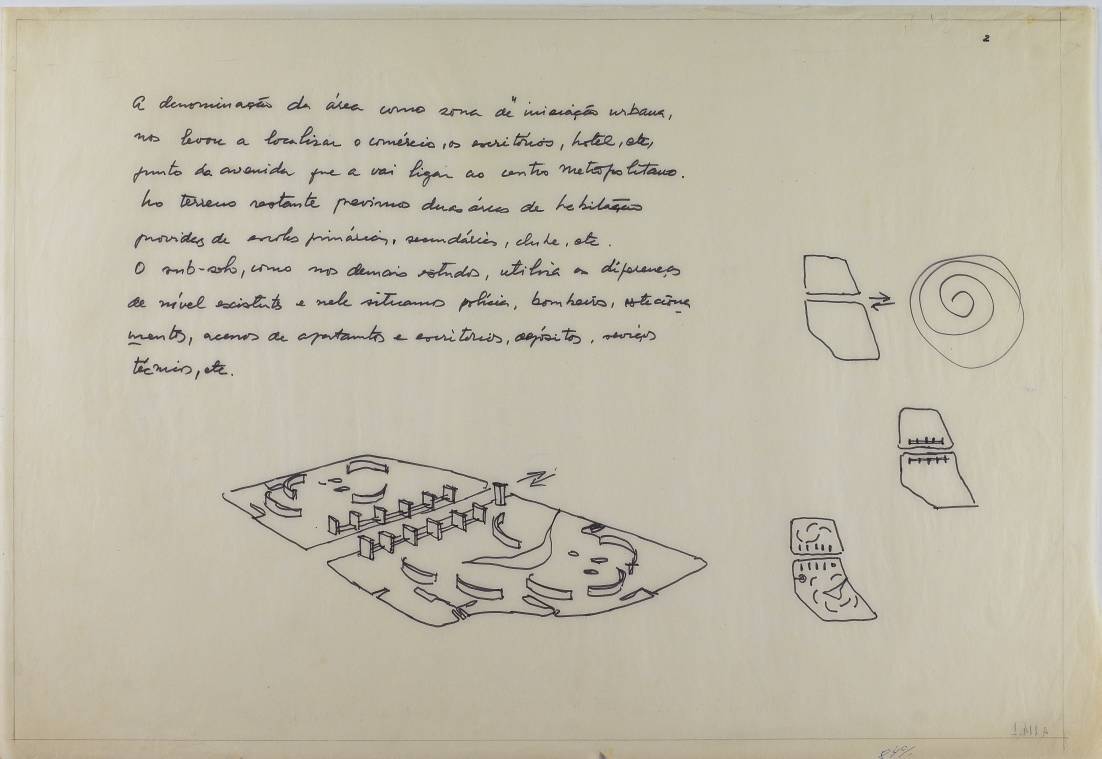 2
A denominação da área como zona de "iniciação urbana,
nos levou a localizar o comércio, os escritórios, hotel, etc,
junto da avenida que a vai ligar ao centro metropolitano.
No terreno restante previmos duas áreas de habitação
providas de escolas primárias, secundárias, clube, etc.
O sub-solo, como nos demais estudos, utiliza as diferenças
de nível existentes e nele situamos polícia, bombeiros, estaciona
mentos, acessos de apartamentos e escritórios, depósitos, serviços
técnicos, etc.